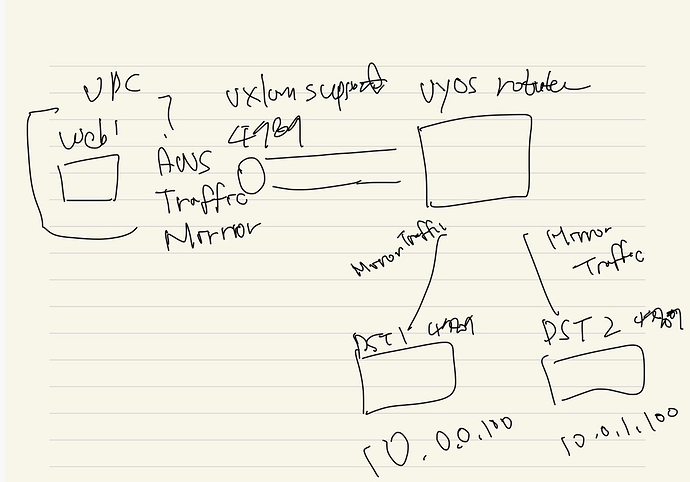 VPC
Web1
AWS
Traffic
Mirror
vxlan support
4789
vyos router
Mirror Traffic
Mirror
Traffic
DST1 4789
DST 2 4789
10.0.0.100
10.0.1.100